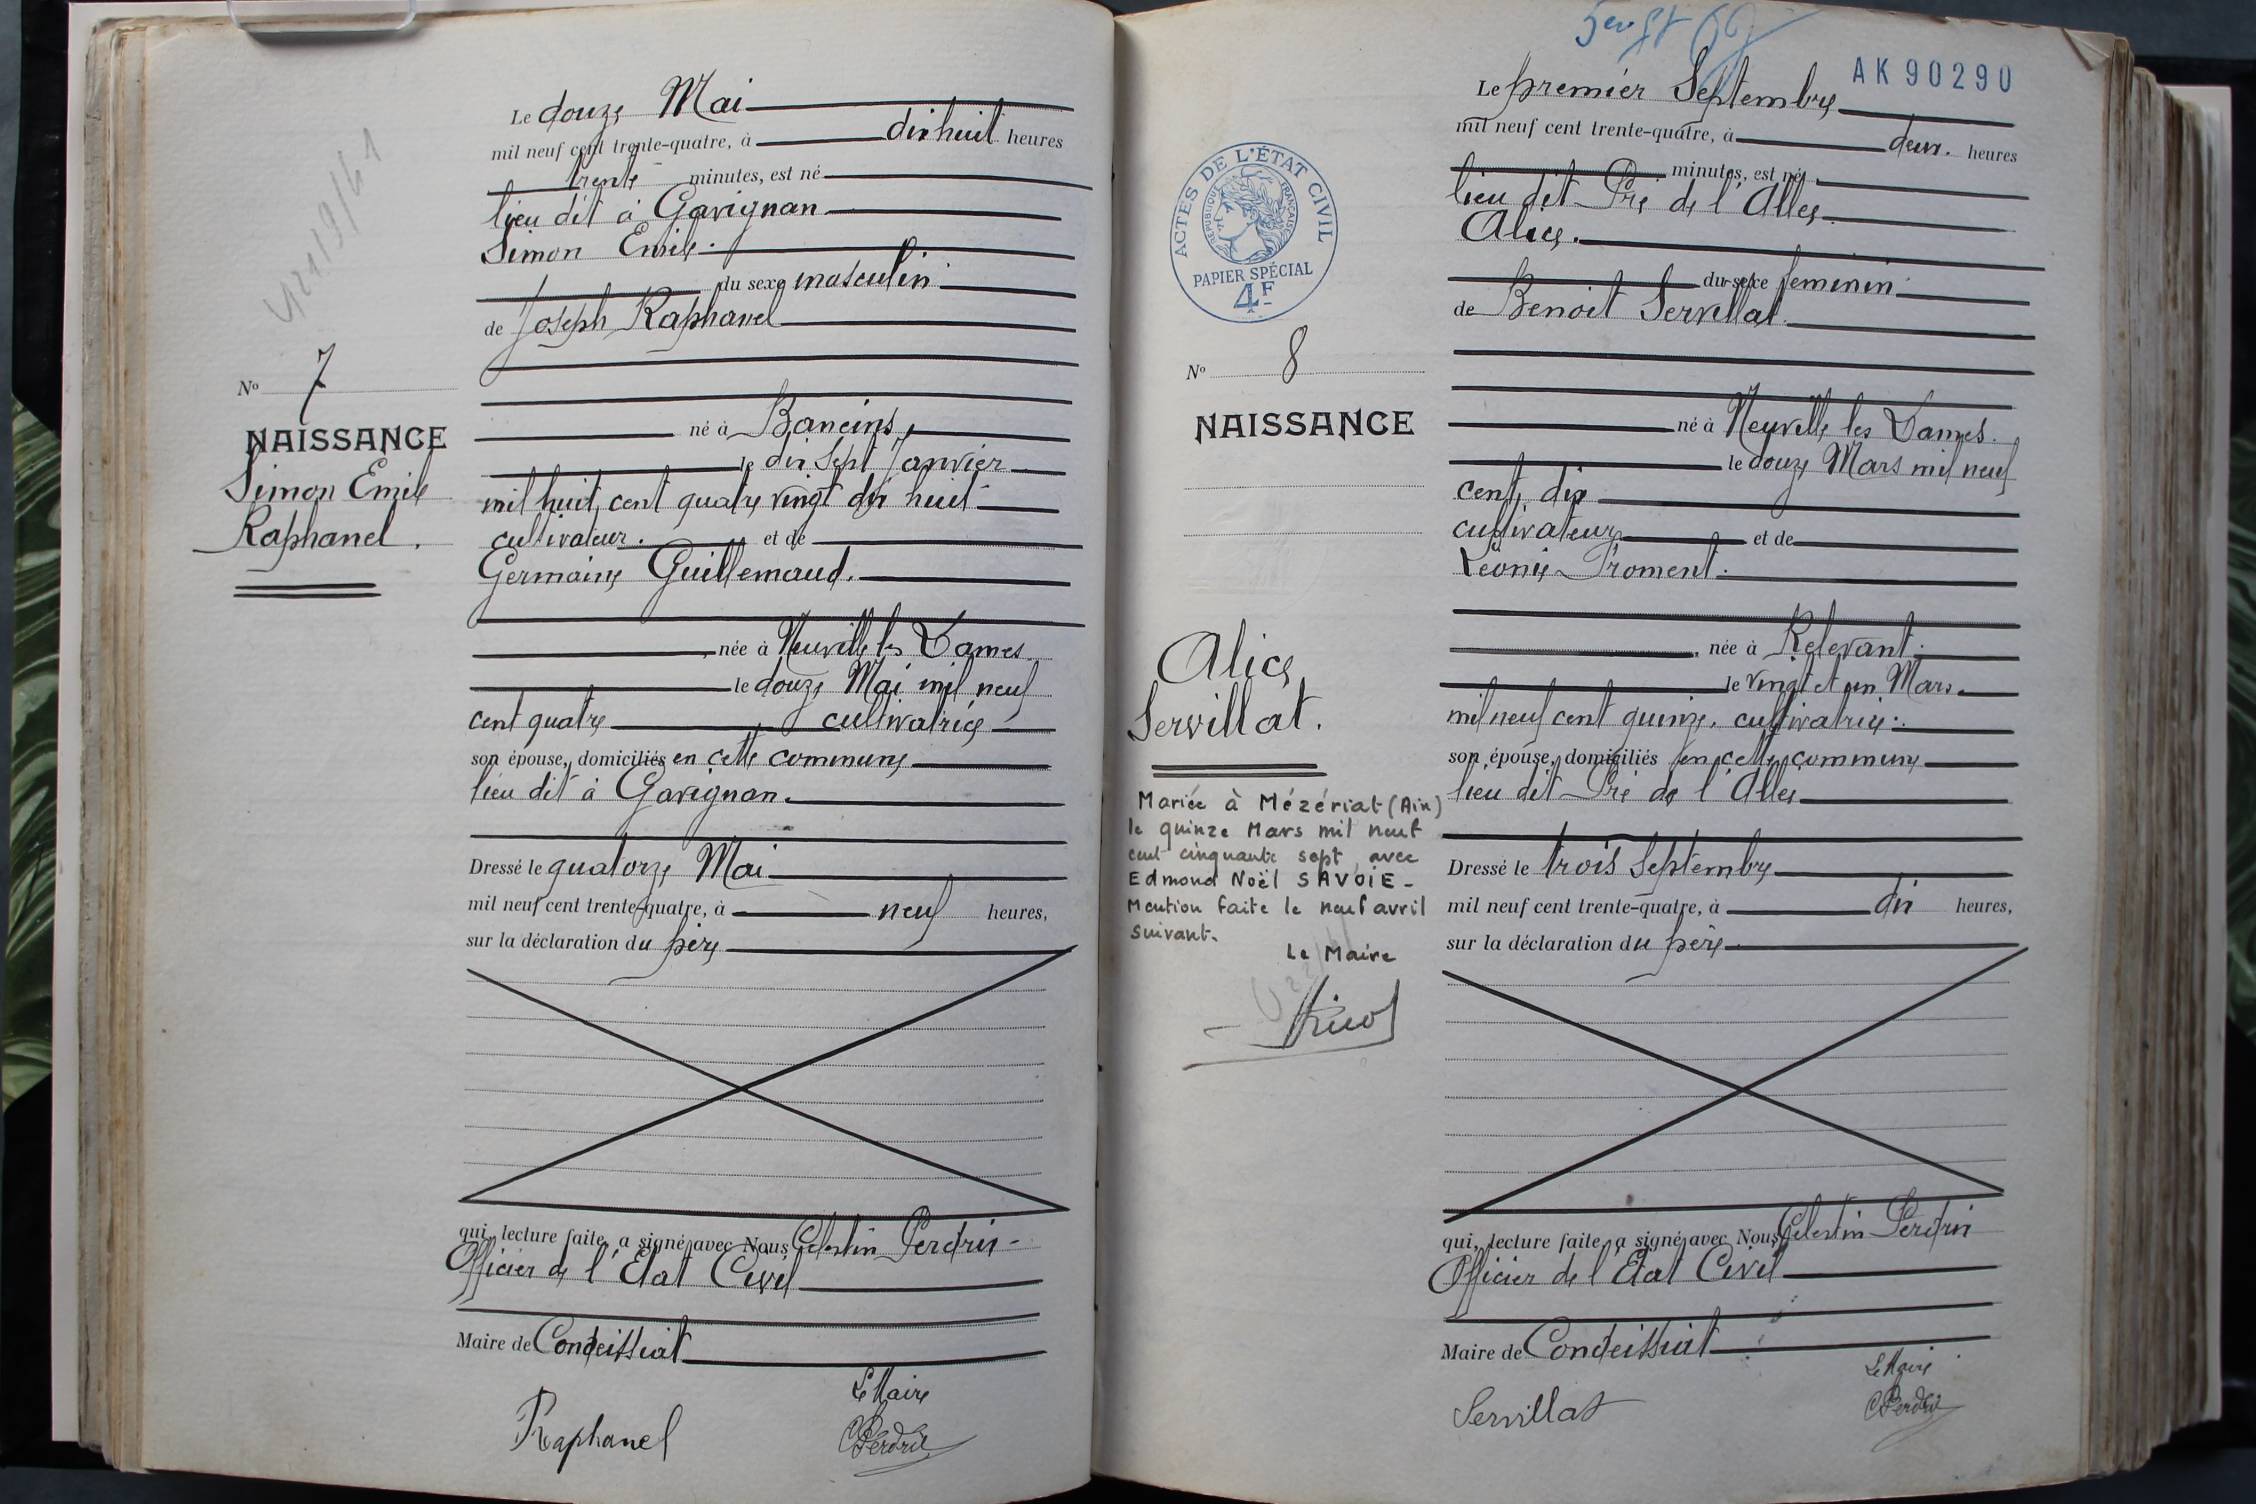 Le douze Mai
mil neuf cent trente-quatre, à dix huit heures
trente minutes, est né
lieu dit à Gavignan
Simon Emile.
du sexe masculin
de Joseph Raphanel
N° 7
NAISSANCE
Simon Emile
Raphanel.
né à Baneins,
le dix sept Janvier
mil huit cent quatre vingt dix huit
cultivateur. et de
Germaine Guillemaud.
née à Neuville les Dames
le douze Mai mil neuf
cent quatre cultivatrice
son épouse, domiciliés en cette commune
lieu dit à Gavignan.
Dressé le quatorze Mai
mil neuf cent trente-quatre, à neuf heures,
sur la déclaration du père
qui, lecture faite, a signé avec Nous Célestin Perdrix
Officier de l'Etat Civil
Maire de Condeissiat
Le Maire
Raphanel
CPerdrix
AK 90290
Le premier Septembre
mil neuf cent trente-quatre, à deux. heures
minutes, est né
lieu dit Pré de l'Allée
Alice.
du sexe féminin
de Benoit Servillat
ACTES DE L'ÉTAT CIVIL
RÉPUBLIQUE FRANÇAISE
PAPIER SPÉCIAL
4F
N° 8
NAISSANCE
Alice
Servillat.
Mariée à Mézériat (Ain)
le quinze Mars mil neuf
cent cinquante sept avec
Edmond Noël SAVOIE-
Mention faite le neuf avril
suivant.
Le Maire
né à Neuville les Dames.
le douze Mars mil neuf
cent dix
cultivateur et de
Léonie Froment.
née à Relevant.
le vingt et un Mars
mil neuf cent quinze, cultivatrice.
son épouse, domiciliés en cette commune
lieu dit Pré de l'Allée
Dressé le trois Septembre
mil neuf cent trente-quatre, à dix heures,
sur la déclaration du père
qui, lecture faite, a signé avec Nous Célestin Perdrix
Officier de l'Etat Civil
Maire de Condeissiat
Le Maire
Servillat
CPerdrix